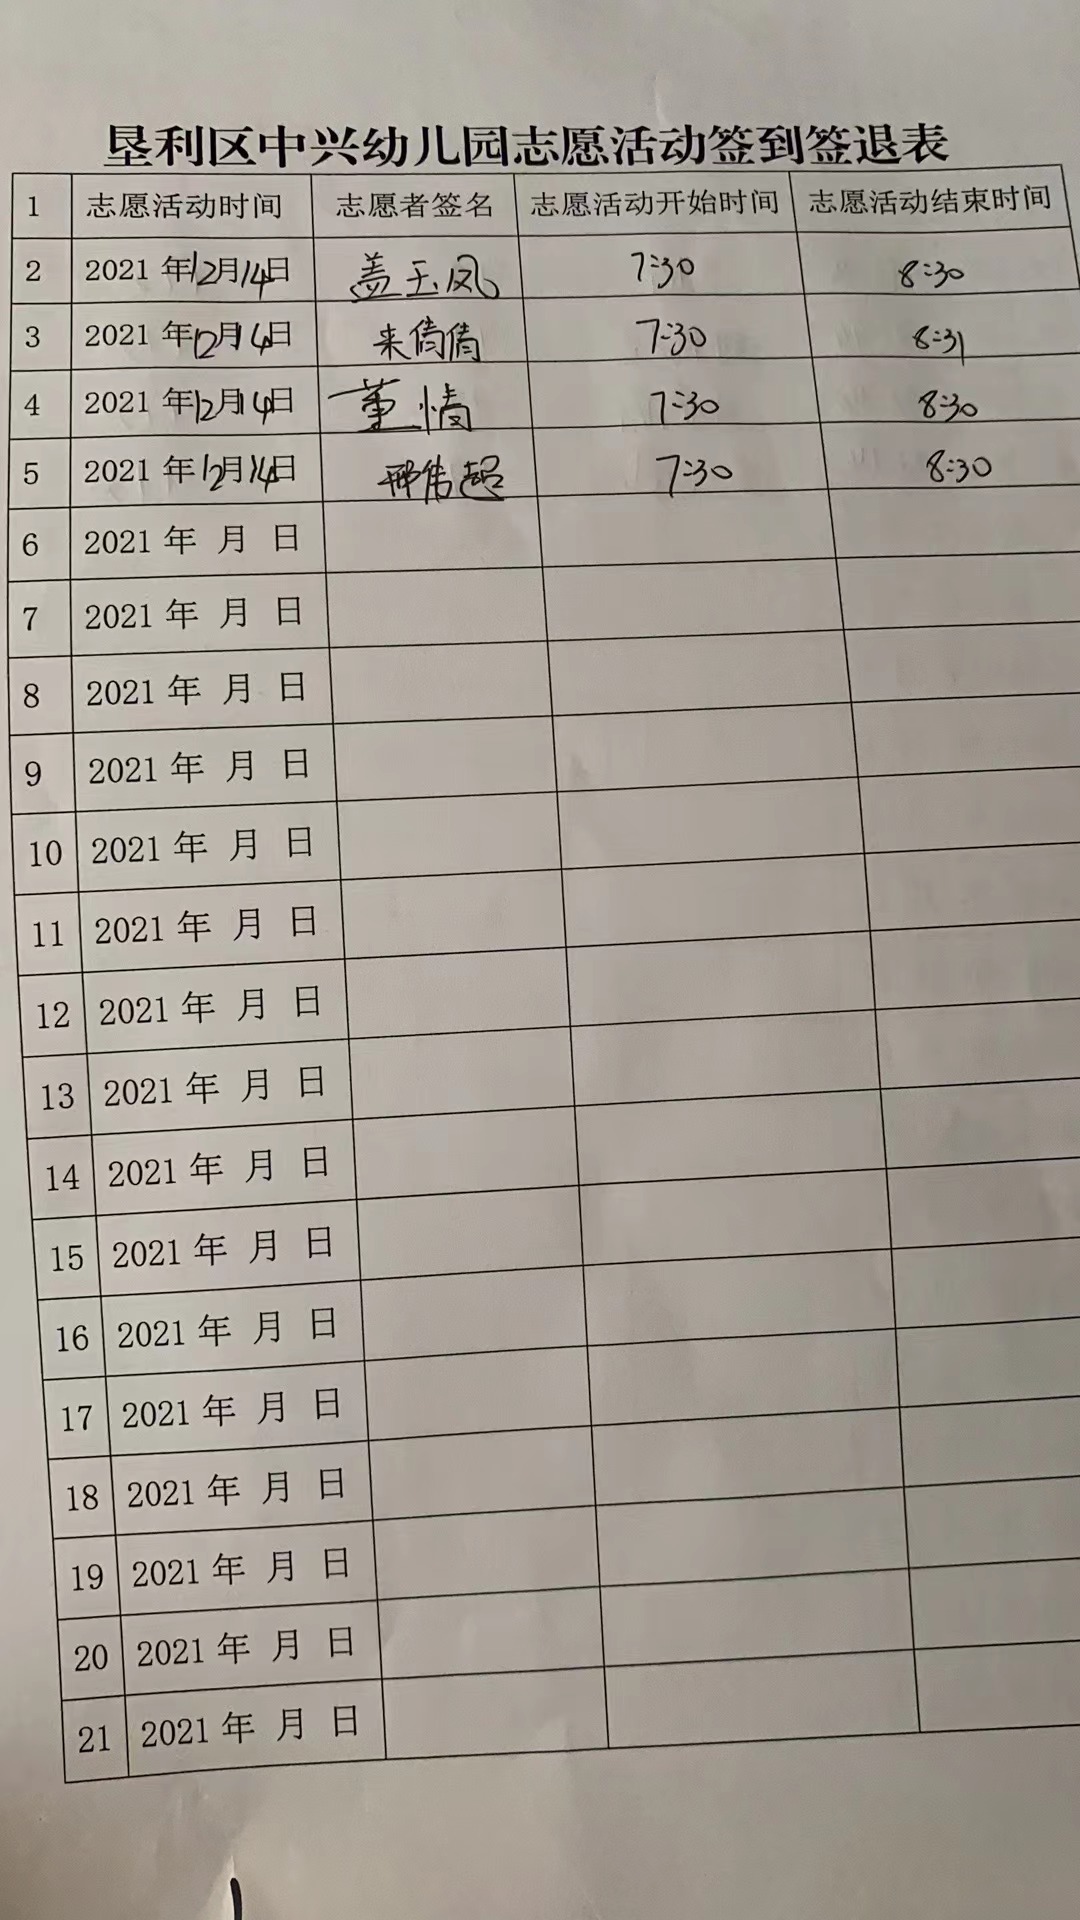 垦利区中兴幼儿园志愿活动签到签退表
1 志愿活动时间 志愿者签名 志愿活动开始时间 志愿活动结束时间
2 2021 年12月14日 盖玉凤 7:30 8:30
3 2021 年12月14日 来倩倩 7:30 8:31
4 2021 年12月14日 董情 7:30 8:30
5 2021 年12月14日 邢伟超 7:30 8:30
6 2021 年 月 日
7 2021 年 月 日
8 2021 年 月 日
9 2021 年 月 日
10 2021 年 月 日
11 2021 年 月 日
12 2021 年 月 日
13 2021 年 月 日
14 2021 年 月 日
15 2021 年 月 日
16 2021 年 月 日
17 2021 年 月 日
18 2021 年 月 日
19 2021 年 月 日
20 2021 年 月 日
21 2021 年 月 日